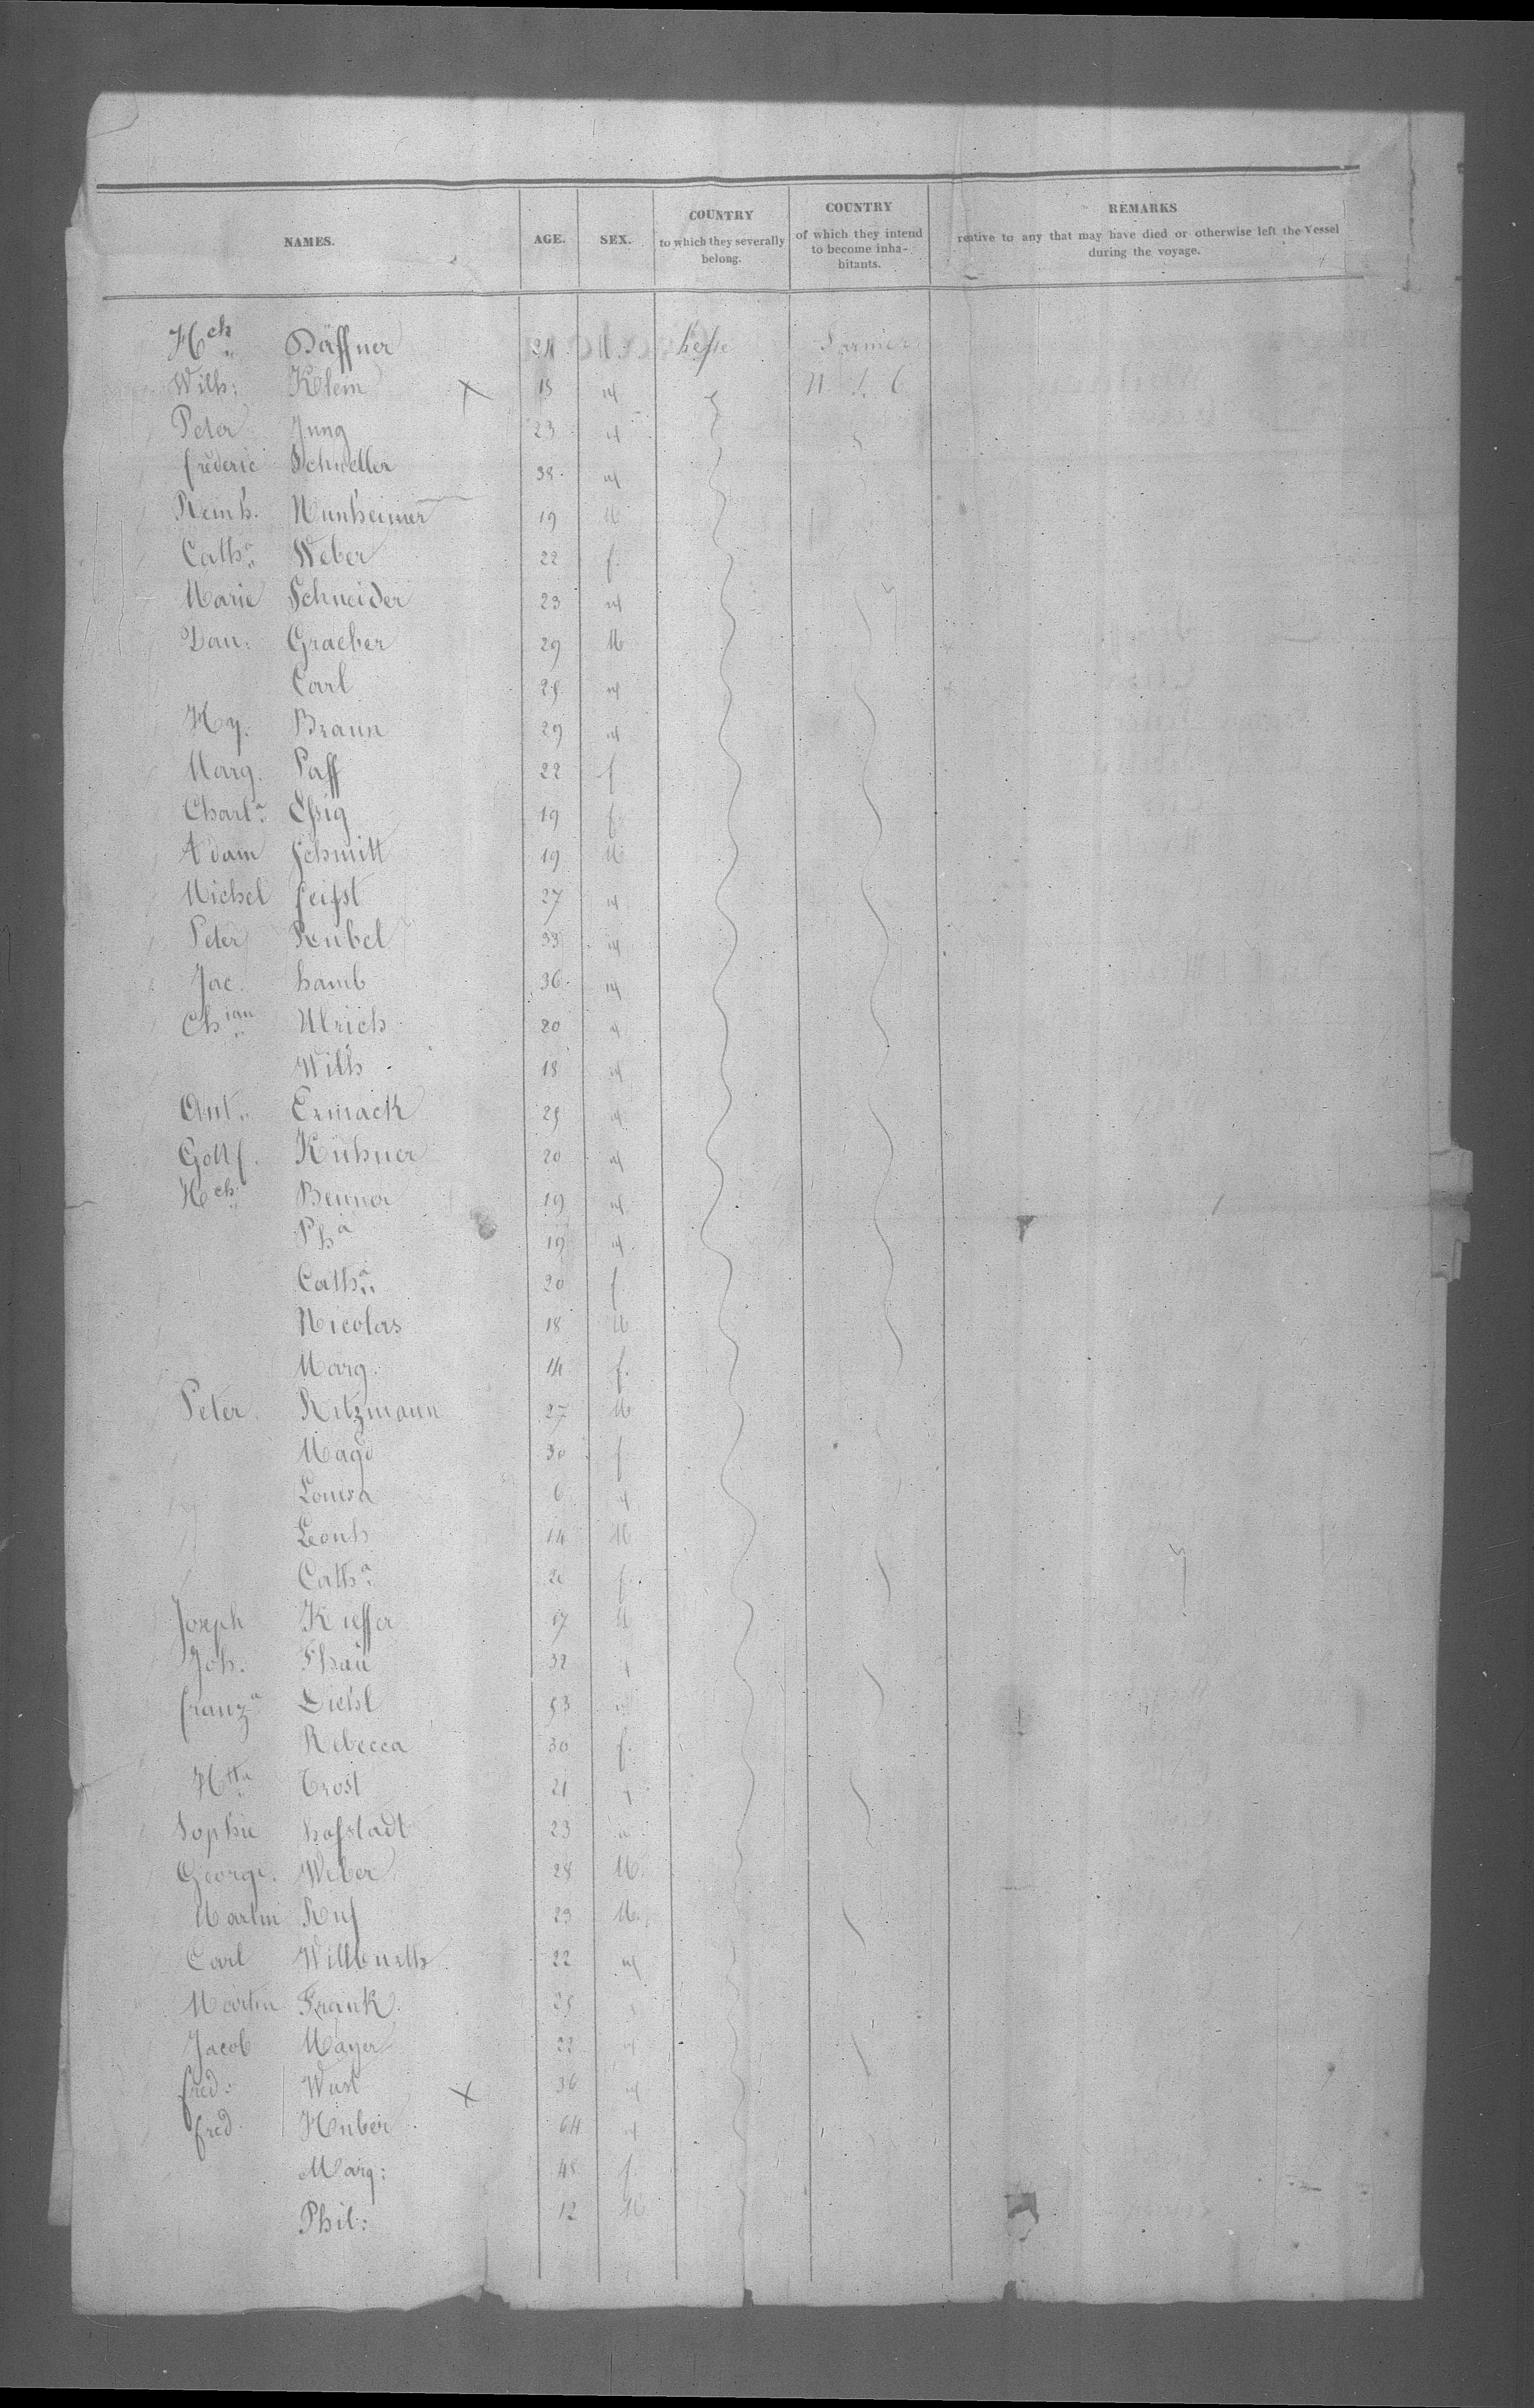 NAMES. AGE. SEX. COUNTRY to which they severally belong. COUNTRY of which they intend to become inhabitants. REMARKS reative to any that may have died or otherwise left the Vessel during the voyage.
Hch Däffner 24 M. hesse Farmer
Wilh: Klein X 18 id U. S.
Peter Jung 23 id
frederic Schneller 38 id
Reinh. Nunheimer 19 M
Catha Weber 22 f.
Marie Schneider 23 id
Dan: Graeber 29 M
Carl 25 id
Hy. Braun 29 id
Marg. Paff 22 f
Charla Essig 19 f.
Adam Schmitt 19 M
Michel feisst 27 id
Peter Reubel 33 id
Jac. hamb 36 id
Chian Ulrich 20 id
Wilh 18 id
Ant. Ermack 25 id
Gottf. Kühner 20 id
Hch Benner 19 id
Pha 19 id
Catha 20 f
Nicolas 18 M
Marg. 14 f.
Peter Ritzmann 27 M
Magd 30 f
Louisa 6 id
Leonh 14 M
Catha 20 f.
Joseph Kieffer 17 M
Joh. Thau 32
franza Diehl 53
Rebecca 30 f.
Htta Trost 21
Sophie hofstadt 23
George Weber 28 M.
Martin Ruf 23 M.
Carl 22 id
Martin Frank 25
Jacob Mayer 22 id
fred: Wust X 36 id
fred. Huber 64 id
Marg: 48 f.
Phil: 12 M